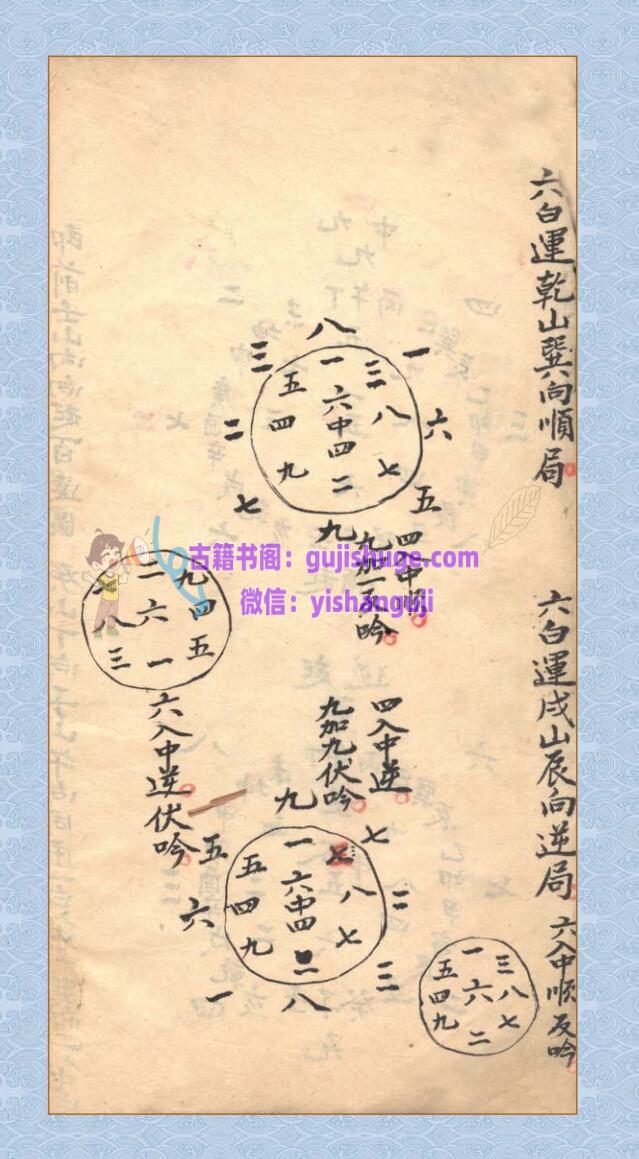 六白運乾山巽向順局
三八一
二六
七九五
三八七
一六中四二
五四九
四入中順
九加一反吟
六白運戌山辰向逆局
六入中順反吟
三八七
一六二
五四九
四入中逆
九加九伏吟
五九七
六二
一八三
八七
一六中四二
五四九
九四五
二六一
八三
六入中逆伏吟
古籍书阁：gujishuge.com
微信：yishanguji